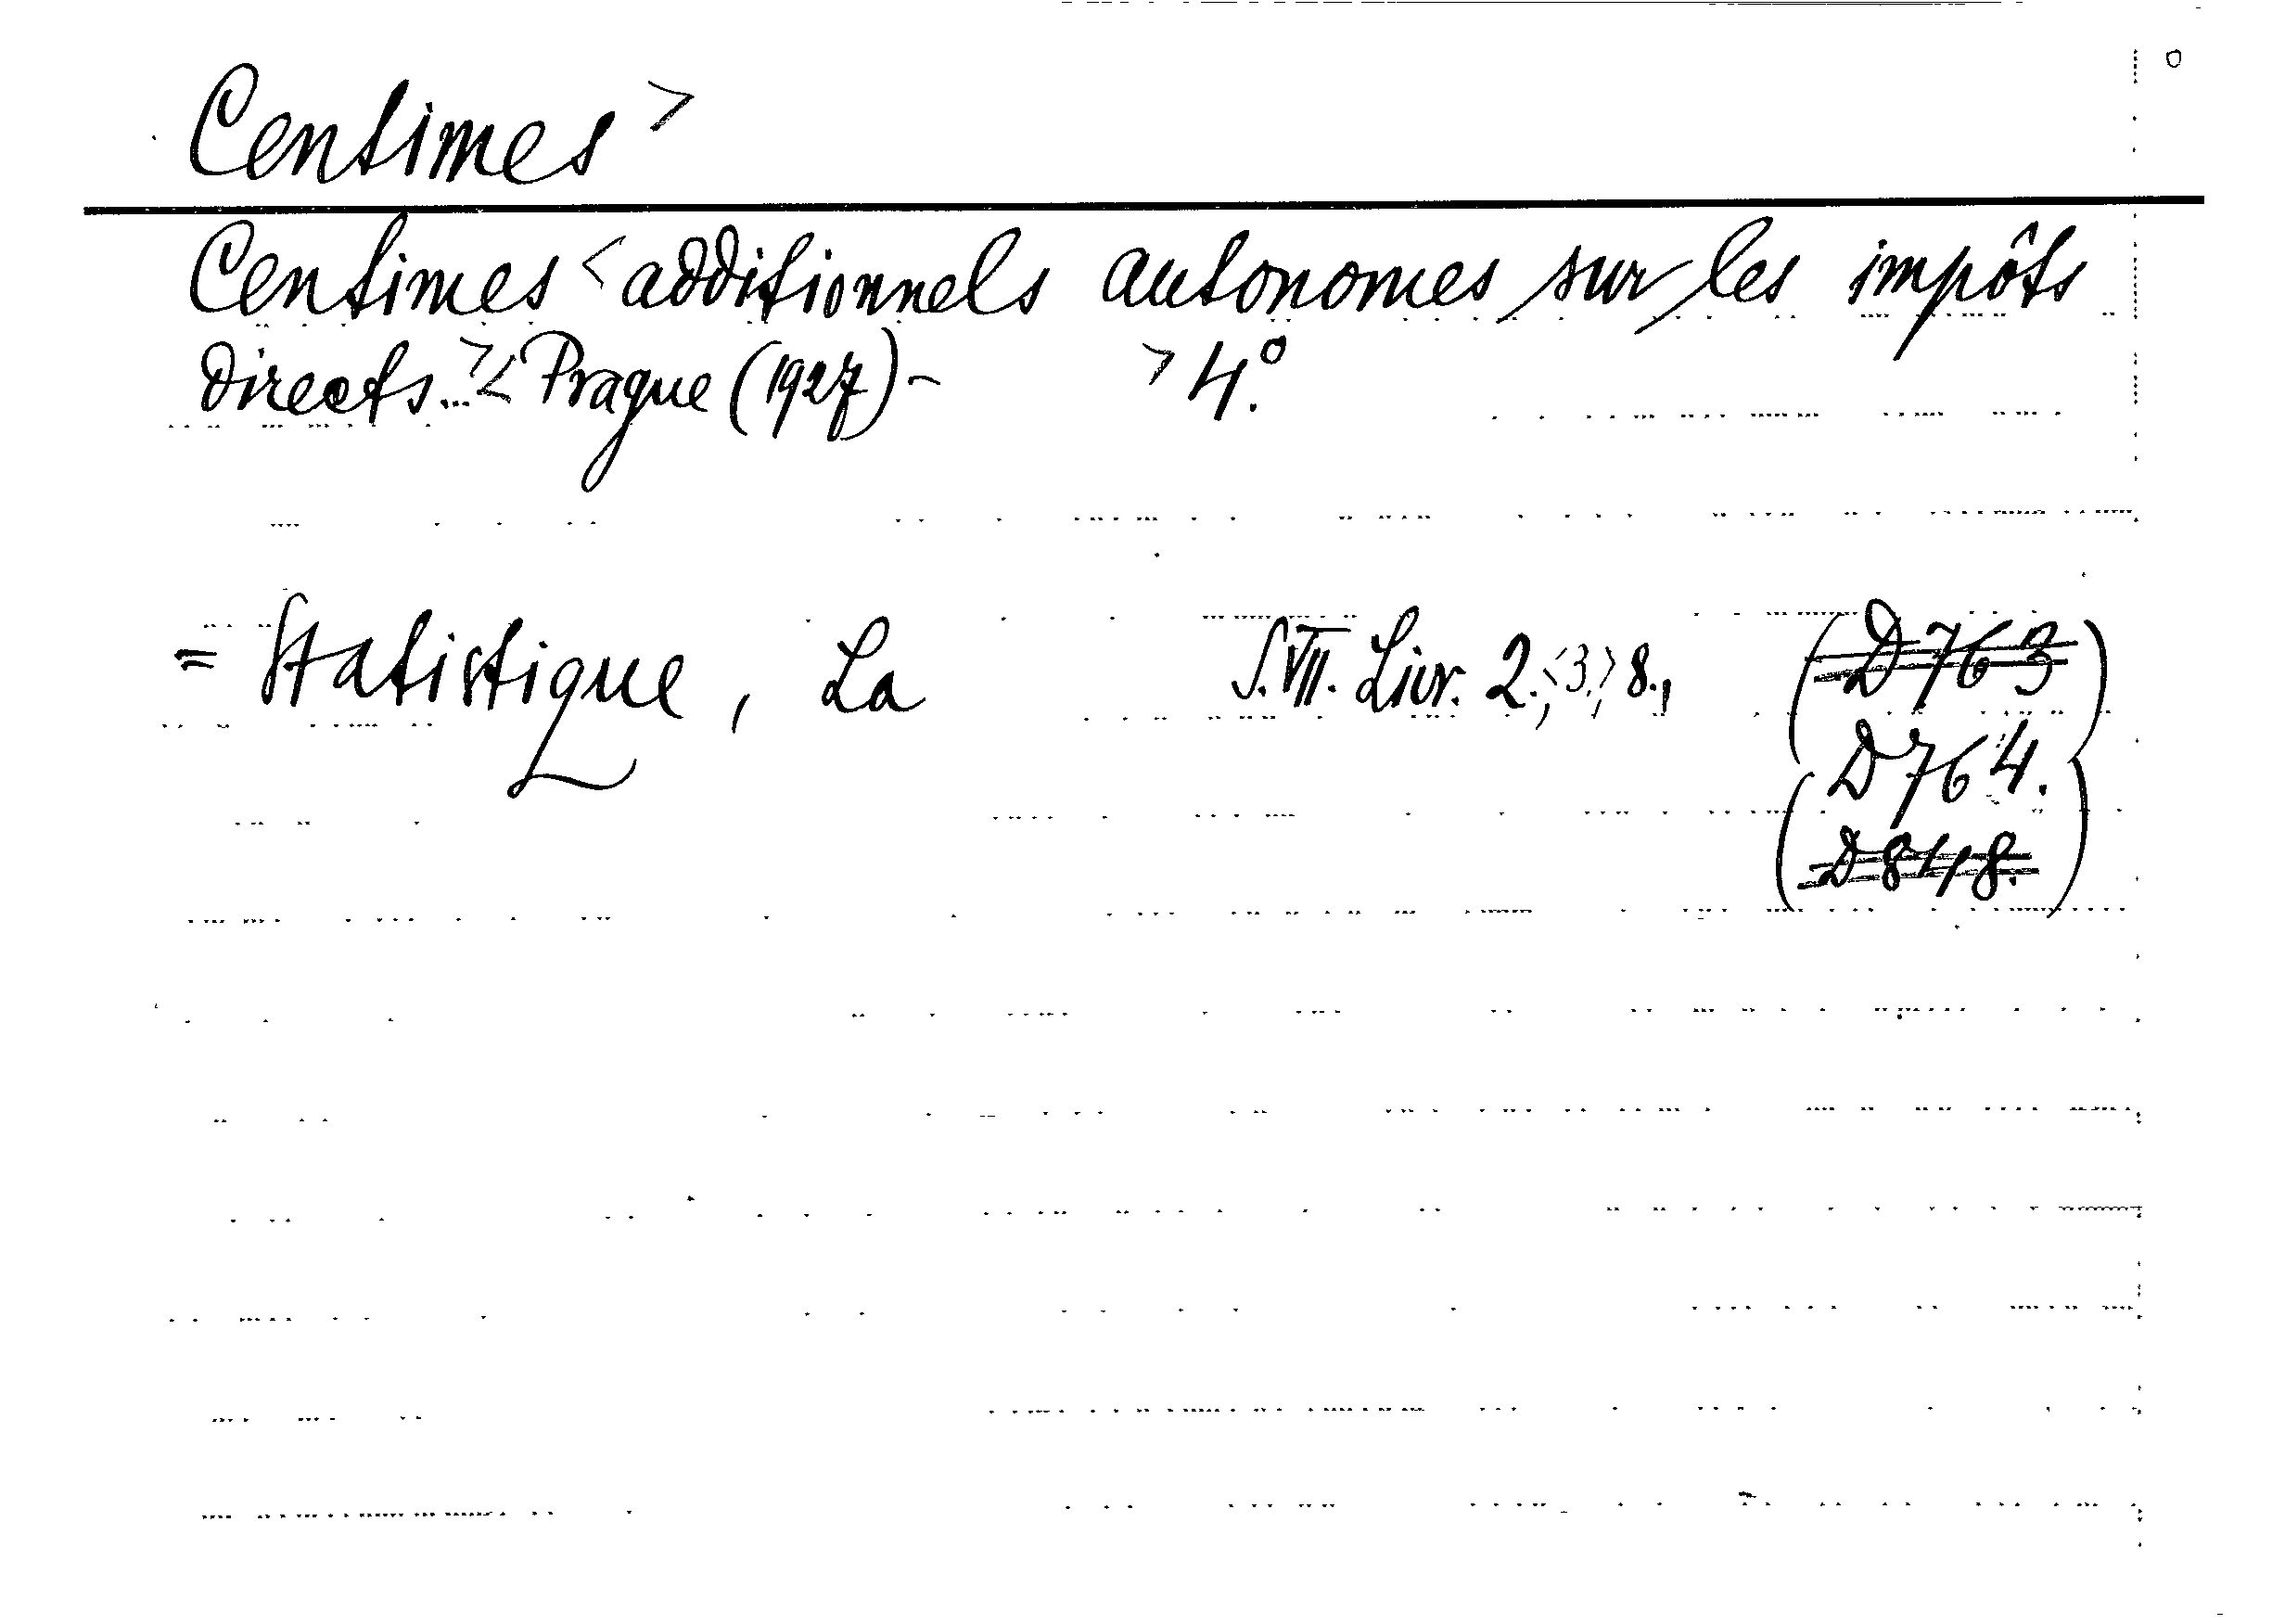 Centimes >
Centimes < additionnels autonomes sur les impôts
directs... > < Prague (1927) - > 4.°
= Statistique, La S. VII. Livr. 2., <3.,> 8., (D 763)
D 764.
(D 848.)